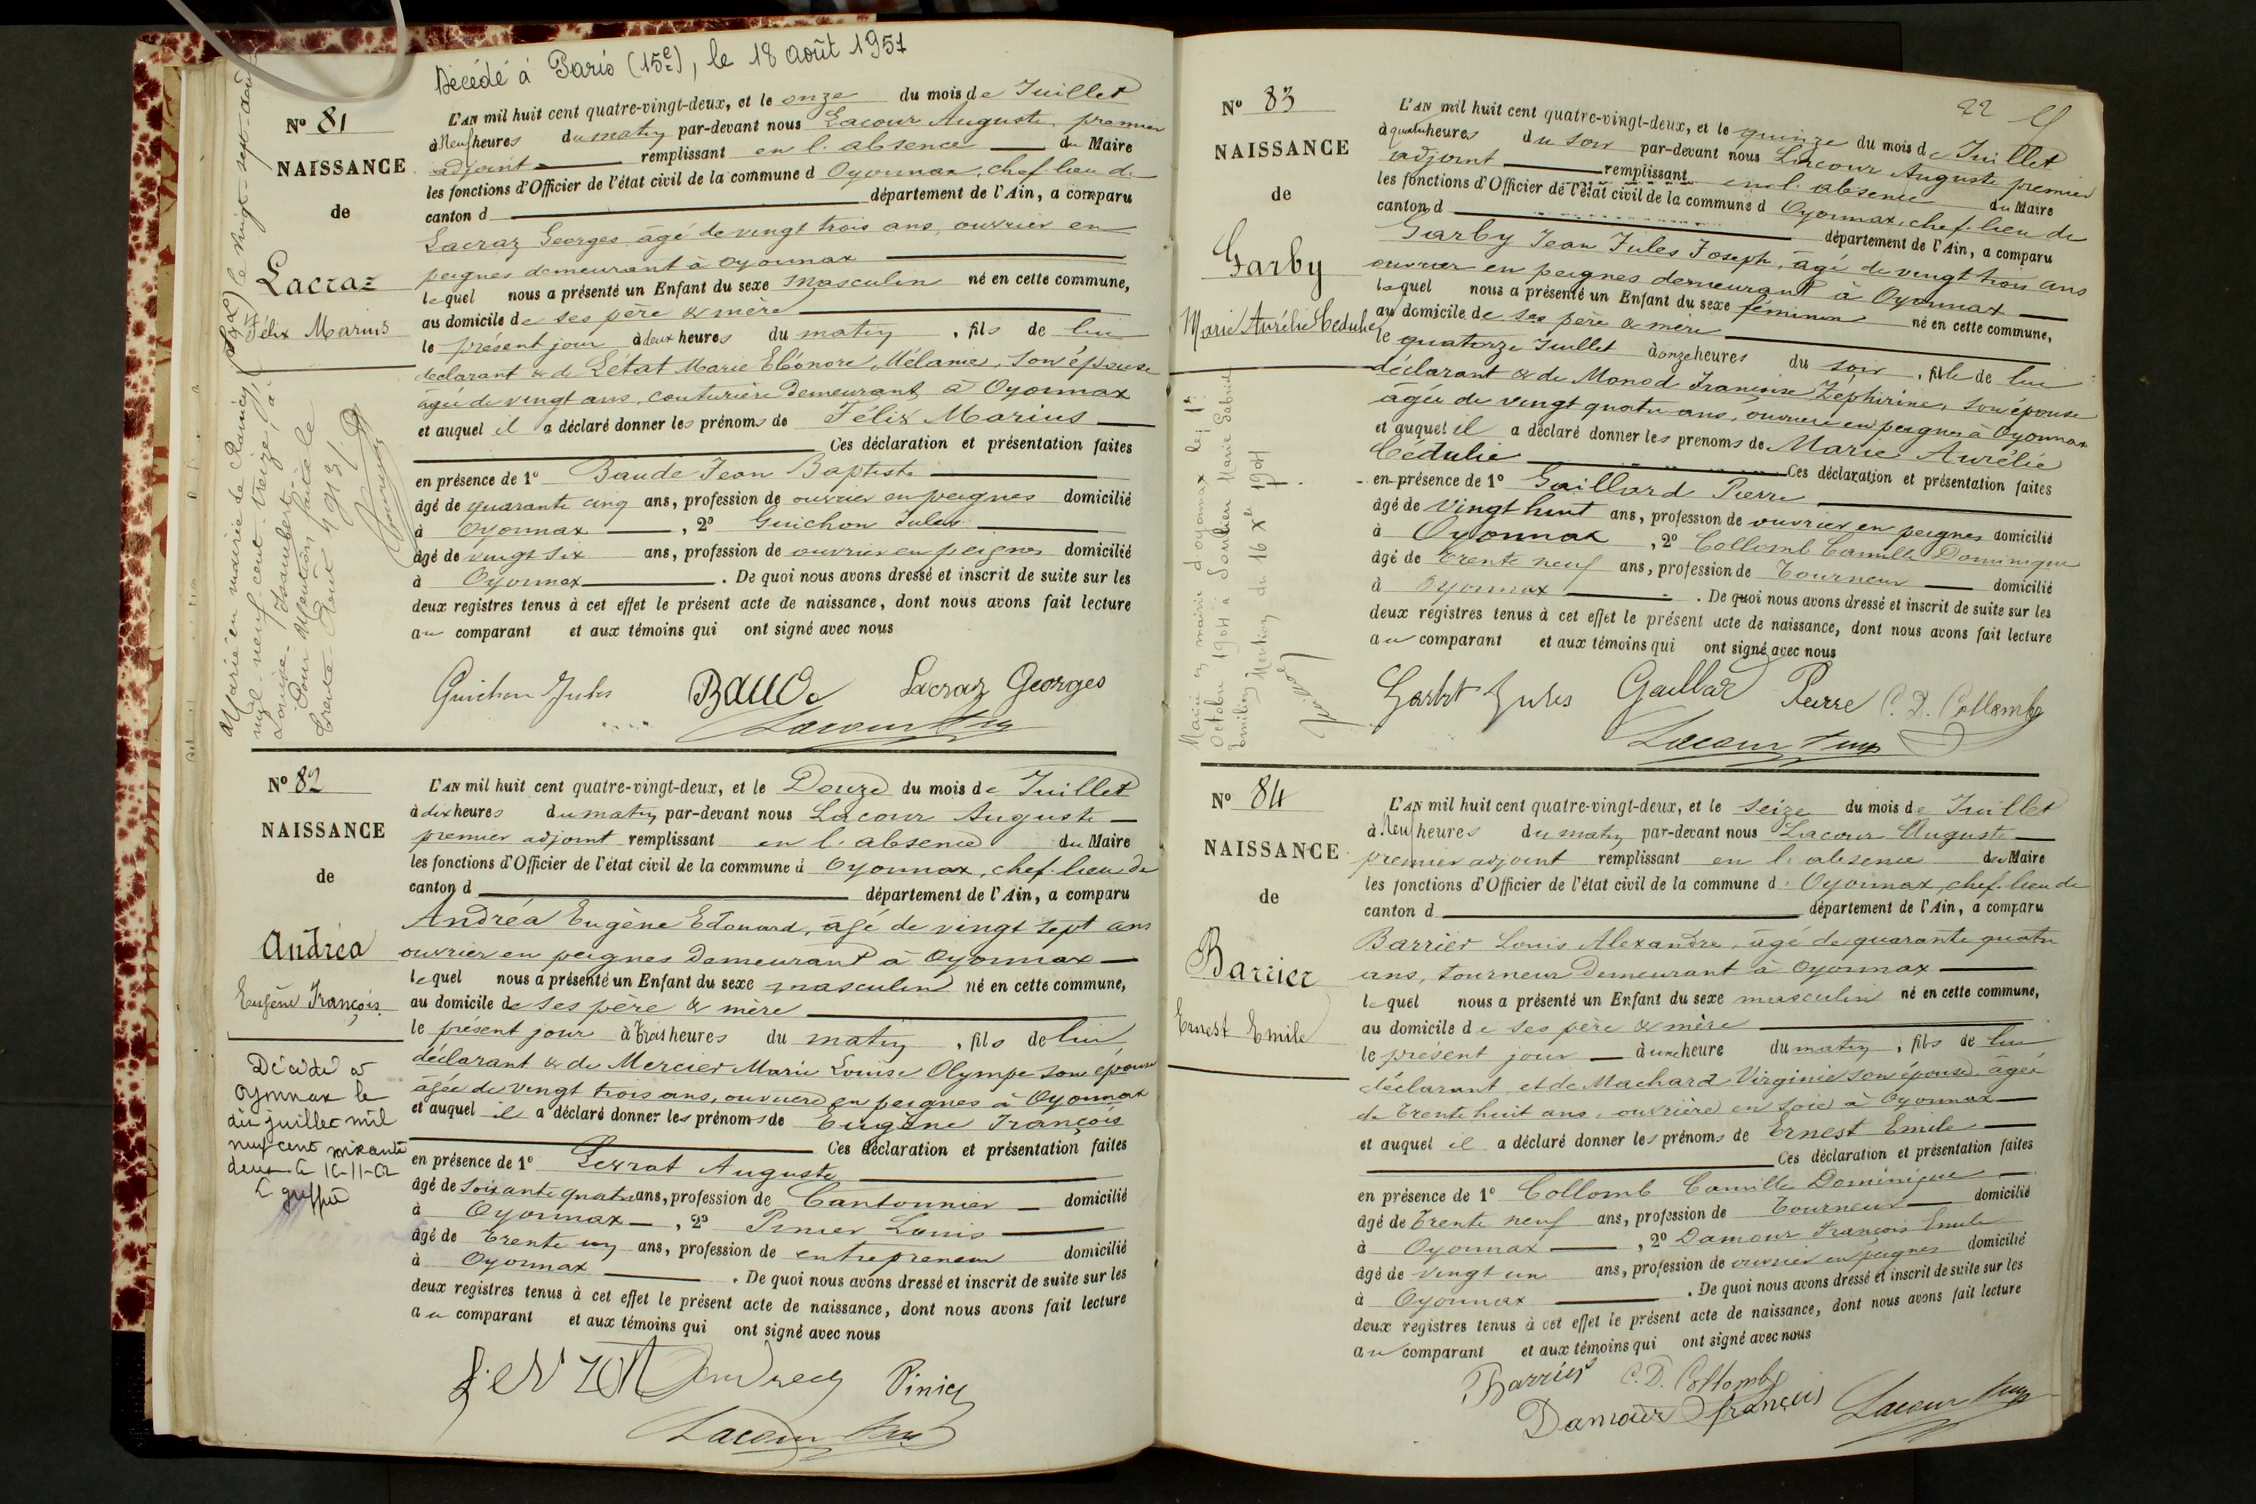 Décédé à Paris (15e), le 18 août 1951
N° 81
NAISSANCE
de
Lacraz
Félix Marius
L'AN mil huit cent quatre-vingt-deux, et le onze du mois de Juillet
à Neuf heures du matin par-devant nous Lacour Auguste, premier
adjoint remplissant en l'absence du Maire
les fonctions d'Officier de l'état civil de la commune d Oyonnax, chef-lieu de
canton d département de l'Ain, a comparu
Lacraz Georges, âgé de vingt trois ans, ouvrier en
peignes demeurant à Oyonnax
lequel nous a présenté un Enfant du sexe masculin né en cette commune,
au domicile de ses père & mère
le présent jour à deux heures du matin, fils de lui
déclarant & de Létat Marie Eléonore Mélanie, son épouse
âgée de vingt ans, couturière demeurant à Oyonnax
et auquel il a déclaré donner les prénoms de Félix Marius
Ces déclaration et présentation faites
en présence de 1° Baude Jean Baptiste
âgé de quarante cinq ans, profession de ouvrier en peignes domicilié
à Oyonnax, 2° Guichon Jules
âgé de vingt six ans, profession de ouvrier en peignes domicilié
à Oyonnax. De quoi nous avons dressé et inscrit de suite sur les
deux registres tenus à cet effet le présent acte de naissance, dont nous avons fait lecture
au comparant et aux témoins qui ont signé avec nous
Guichon Jules Baude Lacraz Georges
Lacour
Marié en mairie de Raincy, le vingt-sept
mil-neuf-cent-treize, à
Louise
Pour mention faite le
trente Août 1913
N° 82
NAISSANCE
de
Andréa
Eugène François
Décédé à
Oyonnax le
dix juillet mil
neuf cent soixante
deux
L greffier
L'AN mil huit cent quatre-vingt-deux, et le Douze du mois de Juillet
à dix heures du matin par-devant nous Lacour Auguste
premier adjoint remplissant en l'absence du Maire
les fonctions d'Officier de l'état civil de la commune d Oyonnax, chef-lieu de
canton d département de l'Ain, a comparu
Andréa Eugène Edouard, âgé de vingt sept ans
ouvrier en peignes demeurant à Oyonnax
lequel nous a présenté un Enfant du sexe masculin né en cette commune,
au domicile de ses père & mère
le présent jour à trois heures du matin, fils de lui
déclarant & de Mercier Marie Louise Olympe son épouse
âgée de vingt trois ans, ouvrière en peignes à Oyonnax
et auquel il a déclaré donner les prénoms de Eugène François
Ces déclaration et présentation faites
en présence de 1° Auguste
âgé de soixante quatre ans, profession de Cantonnier domicilié
à Oyonnax, 2° Louis
âgé de trente un ans, profession de entrepreneur domicilié
à Oyonnax. De quoi nous avons dressé et inscrit de suite sur les
deux registres tenus à cet effet le présent acte de naissance, dont nous avons fait lecture
au comparant et aux témoins qui ont signé avec nous
Lacour
22
N° 83
NAISSANCE
de
Garby
Marie Aurélie Cédulie
L'AN mil huit cent quatre-vingt-deux, et le quinze du mois de Juillet
à quatre heures du soir par-devant nous Lacour Auguste premier
adjoint remplissant en l'absence du Maire
les fonctions d'Officier de l'état civil de la commune d Oyonnax, chef-lieu de
canton d département de l'Ain, a comparu
Garby Jean Jules Joseph, âgé de vingt trois ans
ouvrier en peignes demeurant à Oyonnax
lequel nous a présenté un Enfant du sexe féminin né en cette commune,
au domicile de ses père & mère
le quatorze Juillet à onze heures du soir, fille de lui
déclarant & de Monod Françoise Zéphirine, son épouse
âgée de vingt quatre ans, ouvrière en peignes à Oyonnax
et auquel il a déclaré donner les prénoms de Marie Aurélie
Cédulie Ces déclaration et présentation faites
en présence de 1° Gaillard Pierre
âgé de vingt huit ans, profession de ouvrier en peignes domicilié
à Oyonnax, 2° Collomb Camille Dominique
âgé de trente neuf ans, profession de Tourneur domicilié
à Oyonnax. De quoi nous avons dressé et inscrit de suite sur les
deux registres tenus à cet effet le présent acte de naissance, dont nous avons fait lecture
au comparant et aux témoins qui ont signé avec nous
Jules Gaillard Pierre C. D. Collomb
Lacour
Mariée en mairie d'Oyonnax le
Octobre 1904 à Marie
Mention du 16 Xe 1904
N° 84
NAISSANCE
de
Barrier
Ernest Emile
L'AN mil huit cent quatre-vingt-deux, et le seize du mois de Juillet
à Neuf heures du matin par-devant nous Lacour Auguste
premier adjoint remplissant en l'absence du Maire
les fonctions d'Officier de l'état civil de la commune d Oyonnax, chef-lieu de
canton d département de l'Ain, a comparu
Barrier Louis Alexandre, âgé de quarante quatre
ans, tourneur demeurant à Oyonnax
lequel nous a présenté un Enfant du sexe masculin né en cette commune,
au domicile de ses père & mère
le présent jour à une heure du matin, fils de lui
déclarant et de Machard Virginie son épouse, âgée
de trente huit ans, ouvrière en soie à Oyonnax
et auquel il a déclaré donner les prénoms de Ernest Emile
Ces déclaration et présentation faites
en présence de 1° Collomb Camille Dominique
âgé de trente neuf ans, profession de Tourneur domicilié
à Oyonnax, 2° Damour François Emile
âgé de vingt un ans, profession de ouvrier en peignes domicilié
à Oyonnax. De quoi nous avons dressé et inscrit de suite sur les
deux registres tenus à cet effet le présent acte de naissance, dont nous avons fait lecture
au comparant et aux témoins qui ont signé avec nous
Barrier C. D. Collomb
Damour françois Lacour